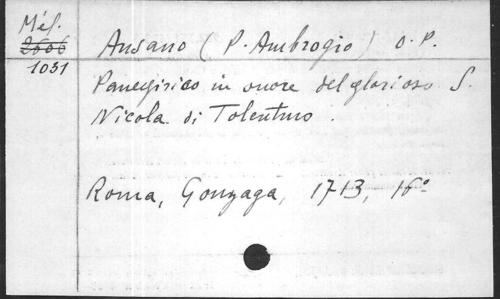 Mél.
2606
1031
Ansano (P. Ambrogio) O.P.
Panegirico in onore del glorioso S.
Nicola di Tolentino.
Roma, Gonzaga, 1713, 16°